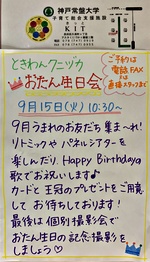 神戸常盤大学
子育て総合支援施設
KIT
ご予約は
電話、FAX
又は
直接スタッフまで
ときわんクニヅカ
おたん生日会
9月15日(火) 10:30~
9月うまれのお友だち 集まれ!
リトミックや パネルシアターを
楽しんだり、Happy Birthdayの
歌でお祝いします♪
カードと王冠のプレゼントをご用意
して お待ちしております!
最後は個別撮影会で
おたん生日の記念撮影を
しましょう♡